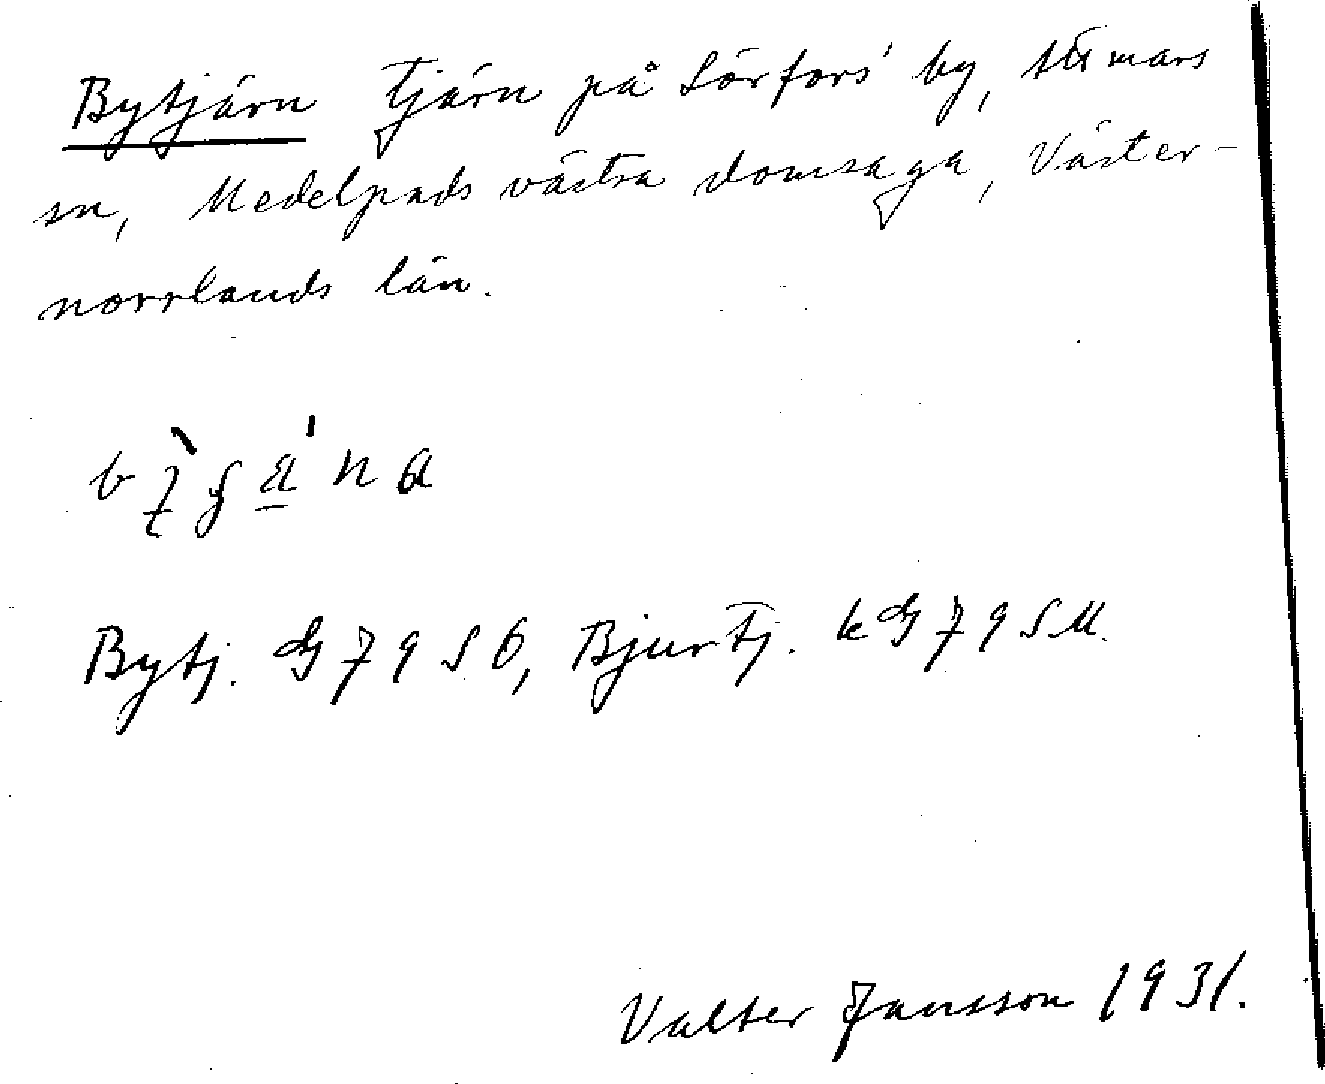 Bytjärn Tjärn på Sörfors' by, Attmars
sn, Medelpads västra domsaga, Väster-
norrlands län.
Bytj. G 79 S 6, Bjurtj. k G 79 S M.
Valter Jansson 1931.